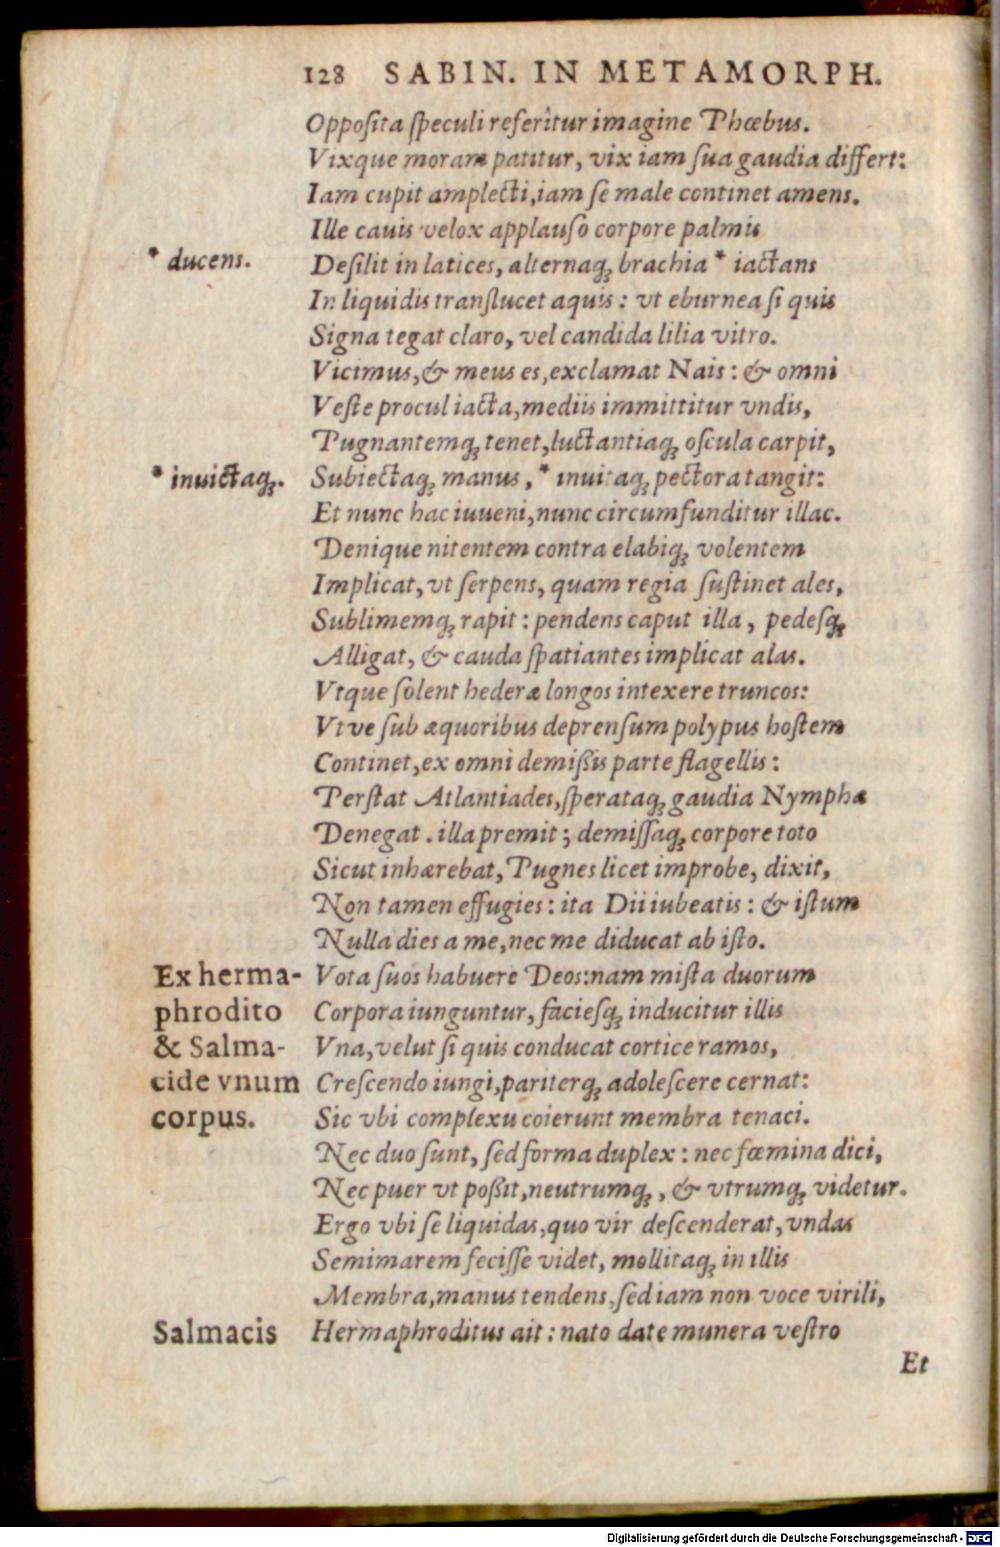 128 SABIN. IN METAMORPH.
Opposita speculi referitur imagine Phœbus.
Vixque moram patitur, vix iam sua gaudia differt:
Iam cupit amplecti, iam se male continet amens.
Ille cauis velox applauso corpore palmis
* ducens.
Desilit in latices, alternaq; brachia * iactans
In liquidis translucet aquis: vt eburnea si quis
Signa tegat claro, vel candida lilia vitro.
Vicimus, & meus es, exclamat Nais: & omni
Veste procul iacta, mediis immittitur vndis,
Pugnantemq; tenet, luctantiaq; oscula carpit,
* inuictaq;.
Subiectaq; manus, * inuitaq; pectora tangit:
Et nunc hac iuueni, nunc circumfunditur illac.
Denique nitentem contra elabiq; volentem
Implicat, vt serpens, quam regia sustinet ales,
Sublimemq; rapit: pendens caput illa, pedesq;
Alligat, & cauda spatiantes implicat alas.
Vtque solent hederæ longos intexere truncos:
Vtve sub æquoribus deprensum polypus hostem
Continet, ex omni demißis parte flagellis:
Perstat Atlantiades, sperataq; gaudia Nymphæ
Denegat. illa premit; demissaq; corpore toto
Sicut inhærebat, Pugnes licet improbe, dixit,
Non tamen effugies: ita Dii iubeatis: & istum
Nulla dies a me, nec me diducat ab isto.
Ex herma-
phrodito
& Salma-
cide vnum
corpus.
Vota suos habuere Deos: nam mista duorum
Corpora iunguntur, faciesq; inducitur illis
Vna, velut si quis conducat cortice ramos,
Crescendo iungi, pariterq; adolescere cernat:
Sic vbi complexu coierunt membra tenaci.
Nec duo sunt, sed forma duplex: nec fœmina dici,
Nec puer vt poßit, neutrumq;, & vtrumq; videtur.
Ergo vbi se liquidas, quo vir descenderat, vndas
Semimarem fecisse videt, mollitaq; in illis
Membra, manus tendens, sed iam non voce virili,
Salmacis
Hermaphroditus ait: nato date munera vestro
Et
Digitalisierung gefördert durch die Deutsche Forschungsgemeinschaft - DFG